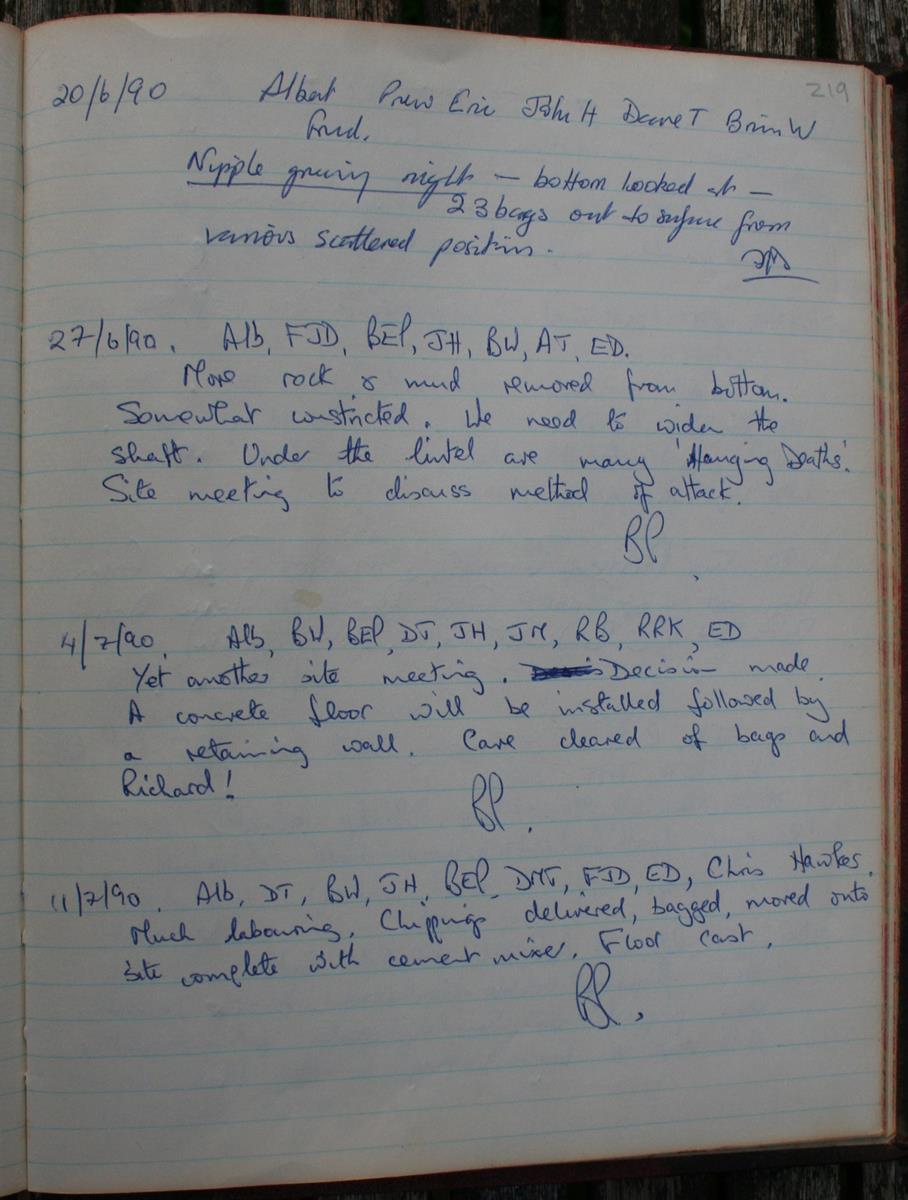 219
20/6/90 Albert Prew Eric John H Dave T Brian W
Fred.
Nipple greasing night — bottom looked at —
23 bags out to surface from
various scattered positions.
27/6/90. Alb, FJD, BEP, JH, BW, AT, ED.
More rock & mud removed from bottom.
Somewhat constricted. We need to widen the
shaft. Under the lintel are many 'Hanging Deaths'.
Site meeting to discuss method of attack.
BP
4/7/90. Alb, BW, BEP, DT, JH, JM, RB, RRK, ED
Yet another site meeting. Decision made.
A concrete floor will be installed followed by
a retaining wall. Cave cleared of bags and
Richard!
BP.
11/7/90. Alb, DT, BW, JH, BEP, DMT, FJD, ED, Chris Hawkes.
Much labouring. Chippings delivered, bagged, moved onto
site complete with cement mixer. Floor cast.
BP.